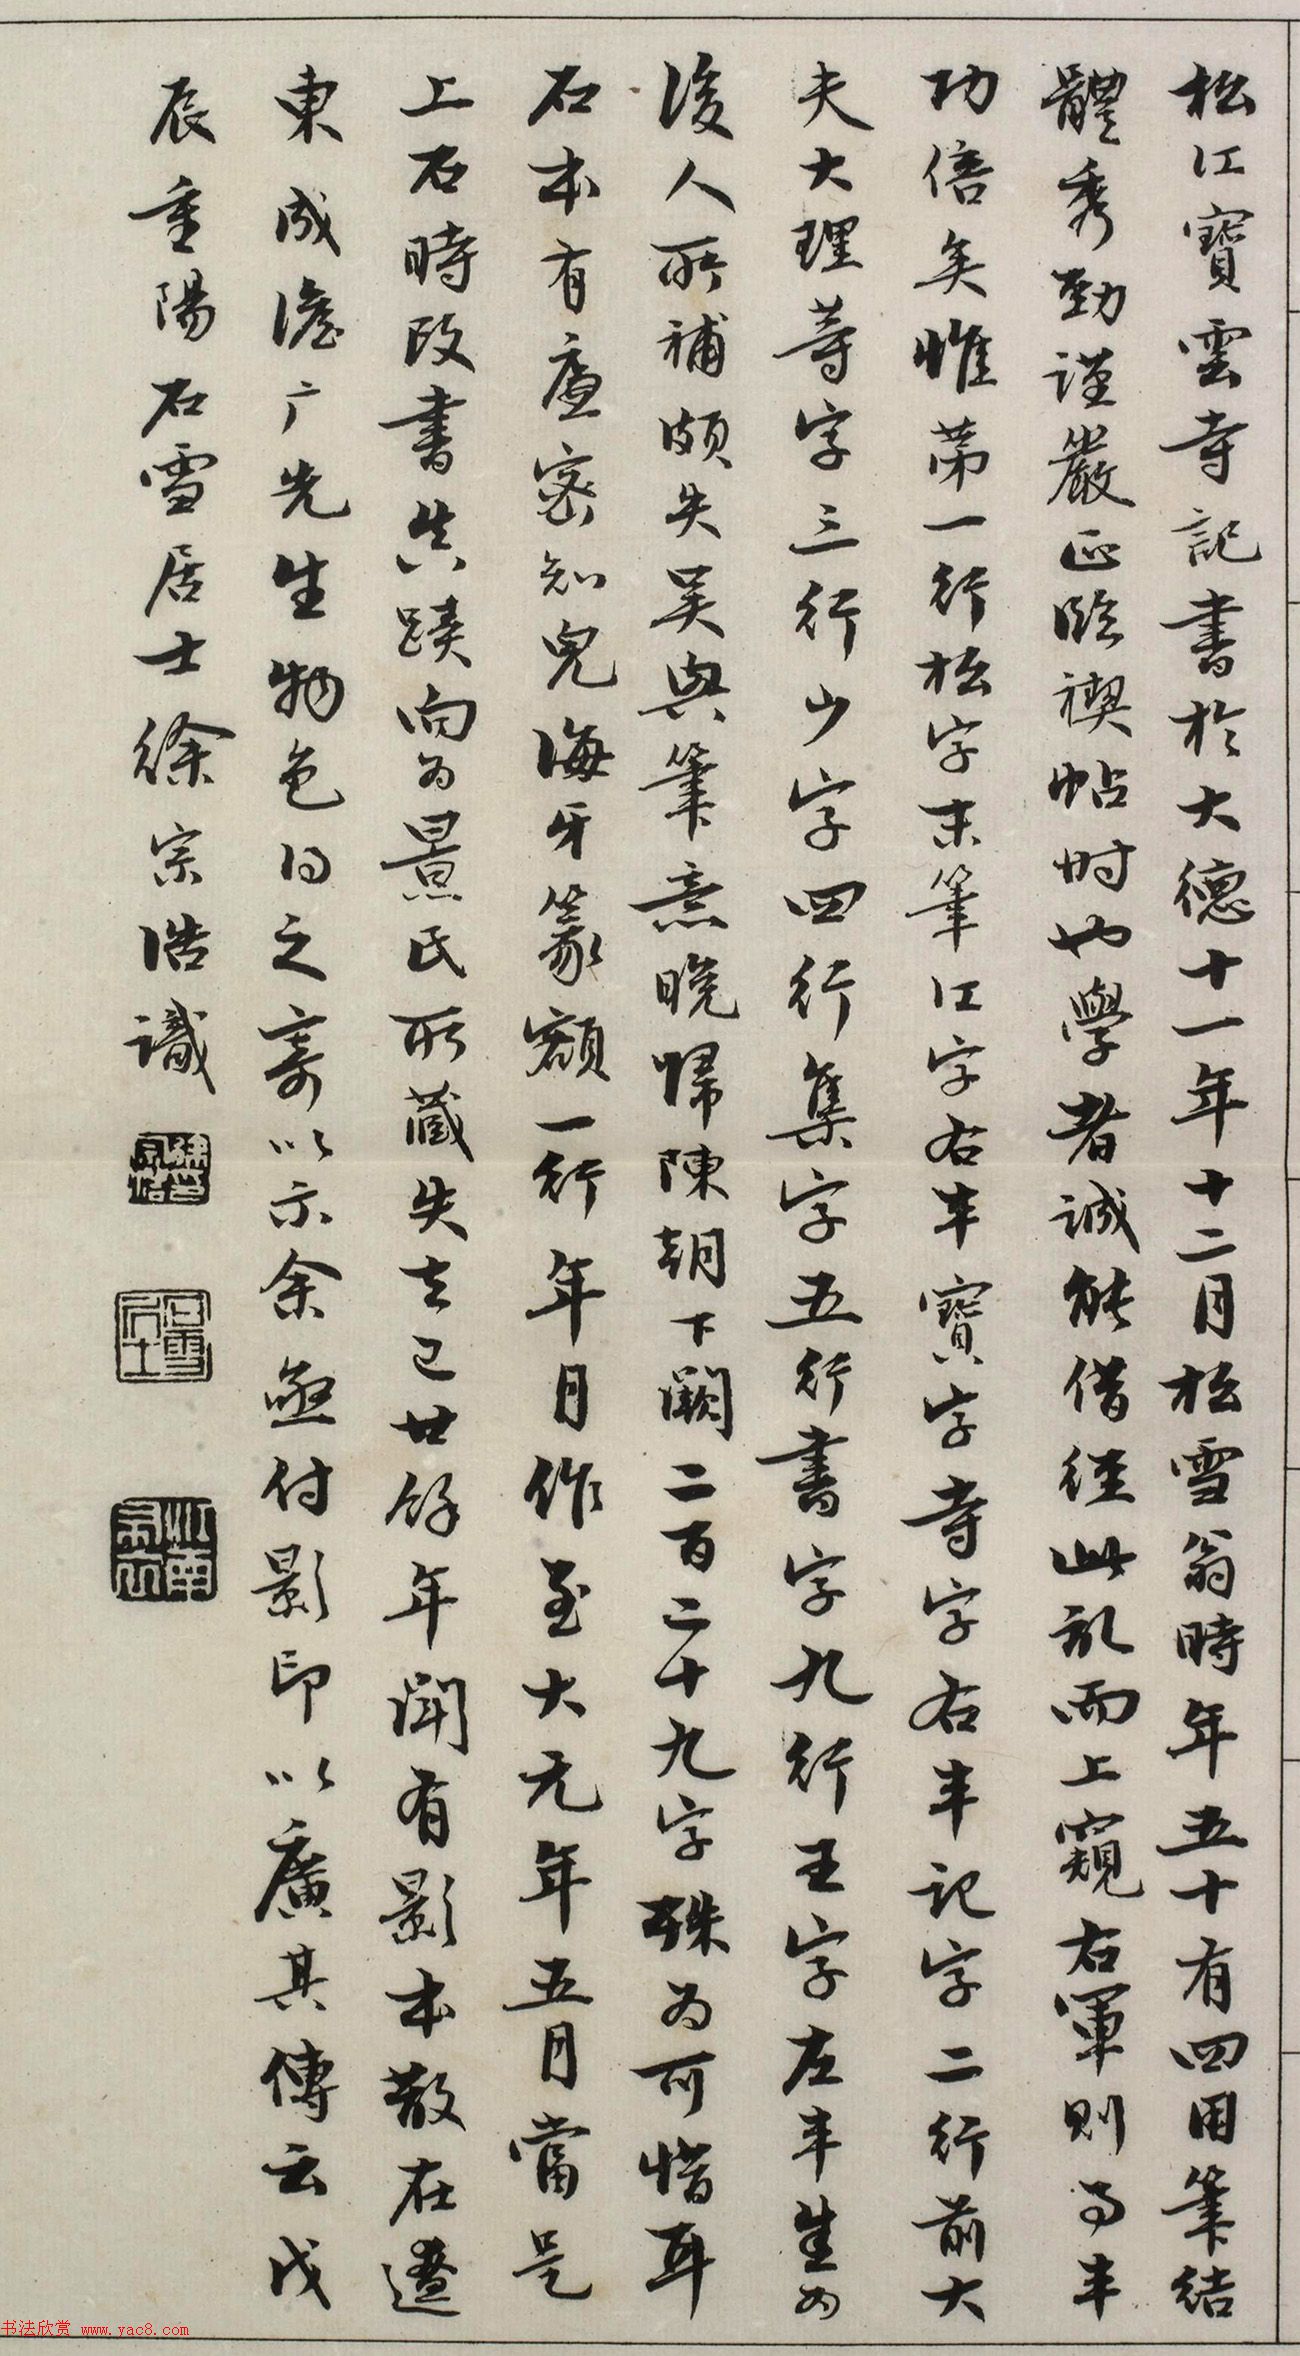 松江寶雲寺記書於大德十一年十二月松雪翁時年五十有四用筆結
體秀勁謹嚴正臨禊帖時也學者誠能借徑此記而上窺右軍則事半
功倍矣惟第一行松字末筆江字右半寶字寺字右半記字二行前大
夫大理等字三行少字四行集字五行書字九行王字左半生如
後人所補頗失吴興筆意晚歸陳朝下闕二百二十九字殊為可惜耳
石本有廉密知兒海牙篆額一行年月作至大元年五月當是
上石時改書真蹟向為景氏所藏失去已廿餘年聞有影本散在遼
東成澹广先生物色得之寄以示余亟付影印以廣其傳云戊
辰重陽石雪居士徐宗浩識
徐宗浩印
石雪居士
书法欣赏 www.yac8.com